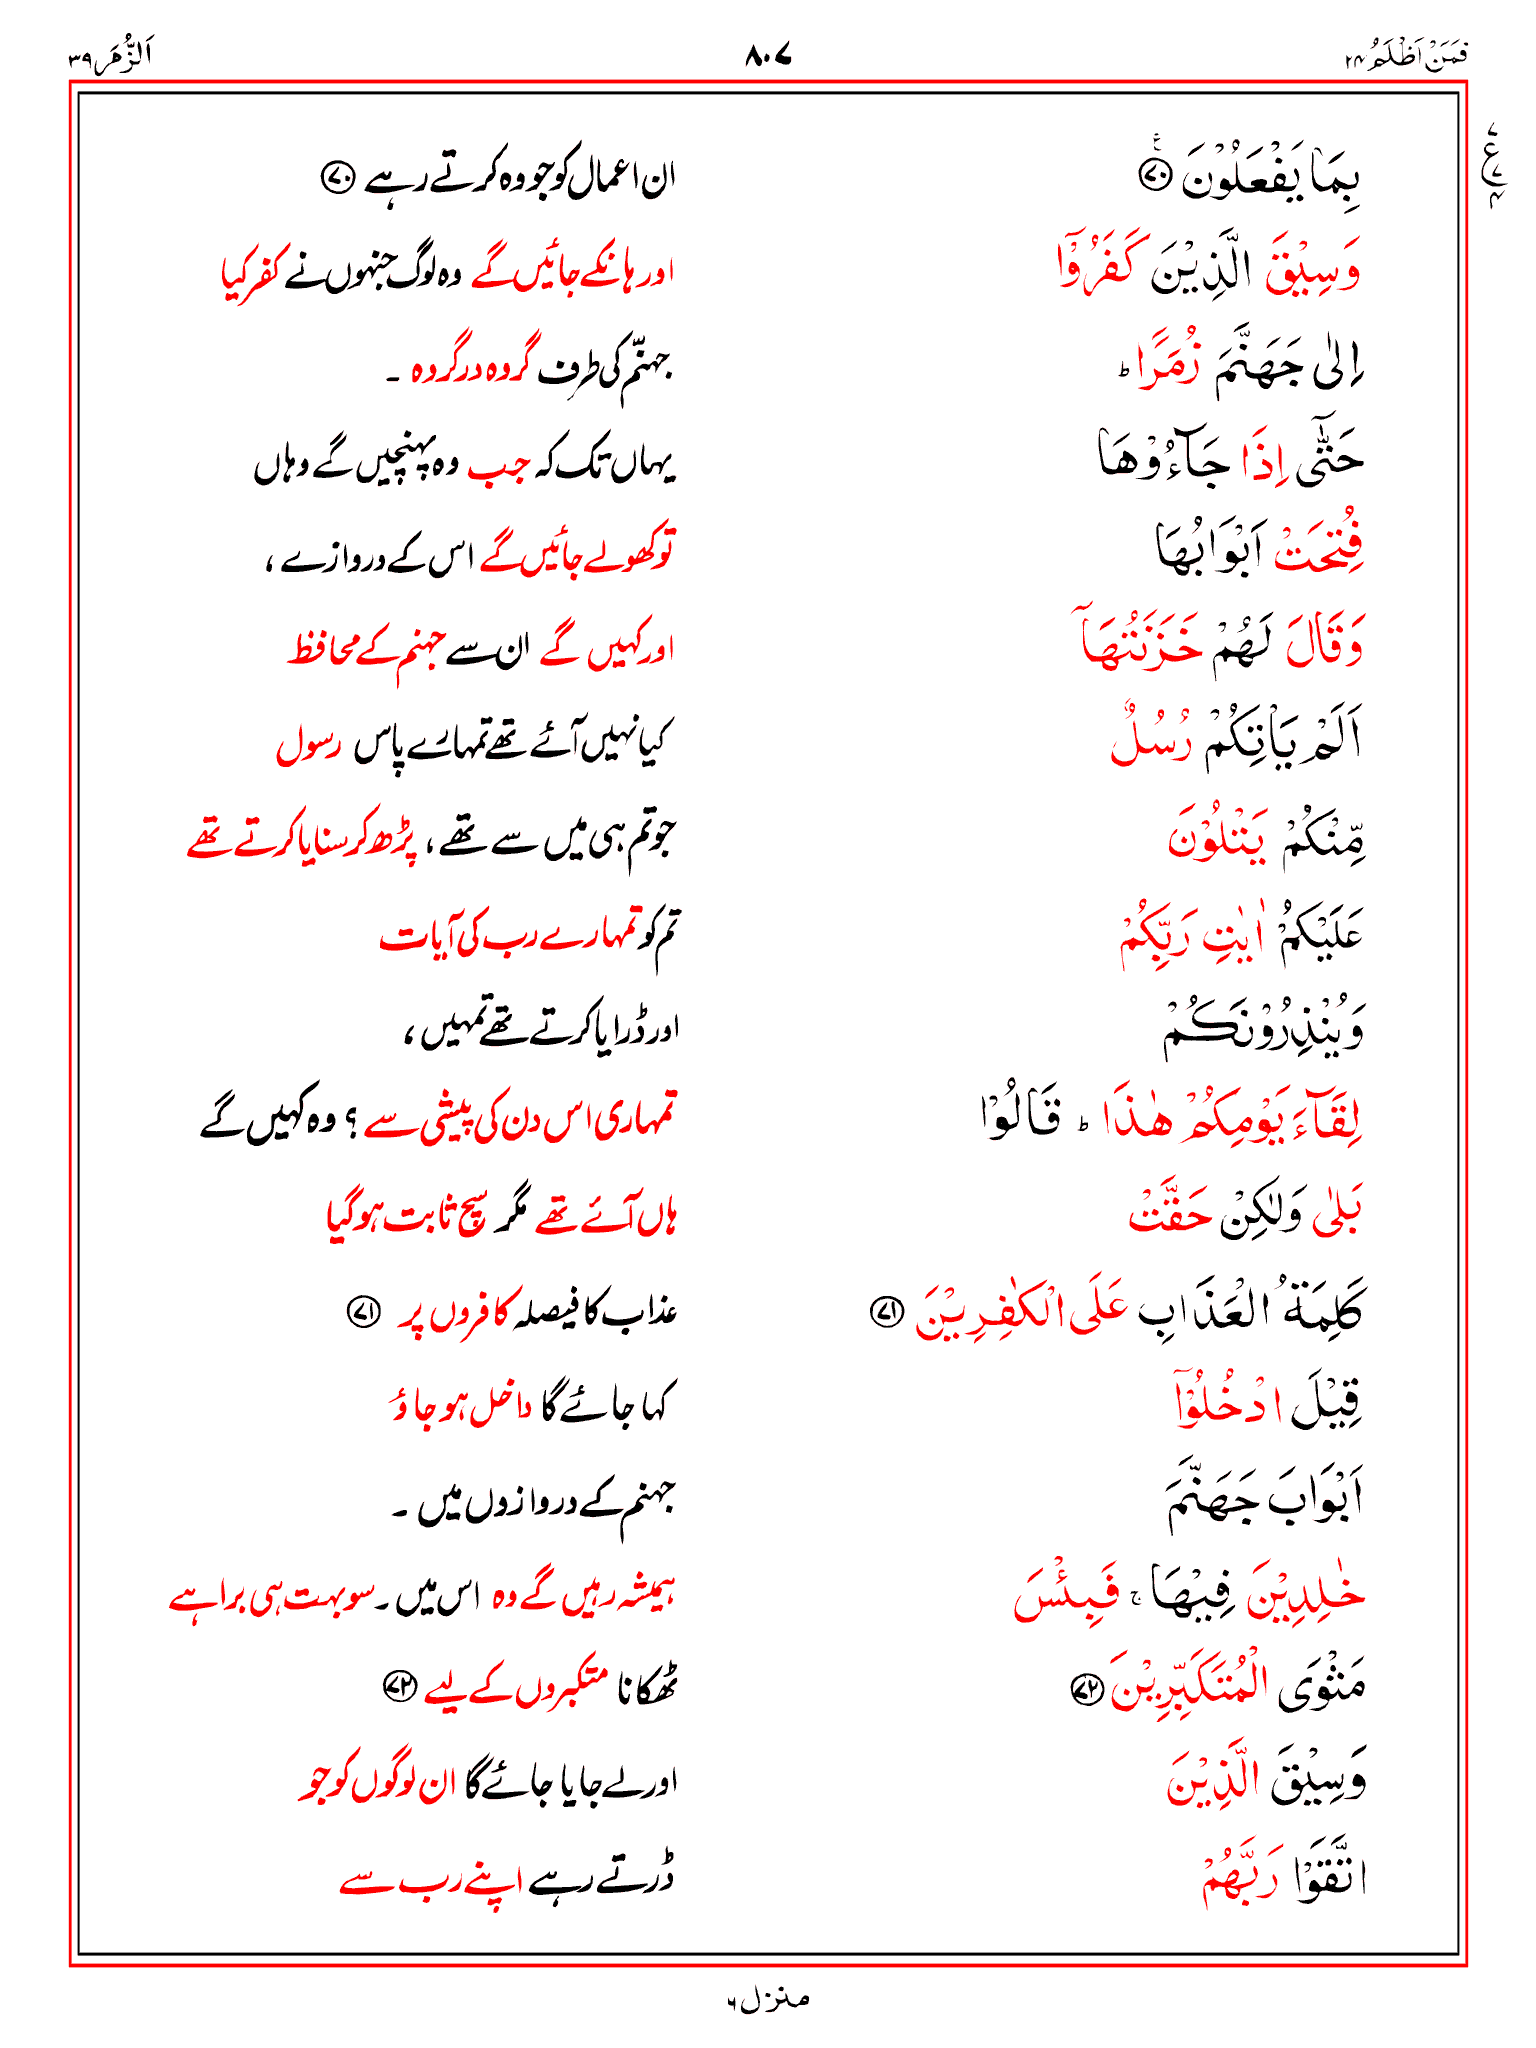 فَمَنْ اَظْلَمُ ۲۴ ۸۰۷ اَلزُّمَر ۳۹
بِمَا يَفْعَلُوْنَ ۷۰ ان اعمال کو جو وہ کرتے رہے ۷۰
وَسِيْقَ الَّذِيْنَ كَفَرُوْٓا اور ہانکے جائیں گے وہ لوگ جنہوں نے کفر کیا
اِلٰى جَهَنَّمَ زُمَرًا ؕ جہنّم کی طرف گروہ در گروہ ۔
حَتّٰٓى اِذَا جَآءُوْهَا یہاں تک کہ جب وہ پہنچیں گے وہاں
فُتِحَتْ اَبْوَابُهَا تو کھولے جائیں گے اس کے دروازے ،
وَقَالَ لَهُمْ خَزَنَتُهَآ اور کہیں گے ان سے جہنم کے محافظ
اَلَمْ يَاْتِكُمْ رُسُلٌ کیا نہیں آئے تھے تمہارے پاس رسول
مِّنْكُمْ يَتْلُوْنَ جو تم ہی میں سے تھے ، پڑھ کر سنایا کرتے تھے
عَلَيْكُمْ اٰيٰتِ رَبِّكُمْ تم کو تمہارے رب کی آیات
وَيُنْذِرُوْنَكُمْ اور ڈرایا کرتے تھے تمہیں ،
لِقَآءَ يَوْمِكُمْ هٰذَا ؕ قَالُوْا تمہاری اس دن کی پیشی سے ؟ وہ کہیں گے
بَلٰى وَلٰكِنْ حَقَّتْ ہاں آئے تھے مگر سچ ثابت ہو گیا
كَلِمَةُ الْعَذَابِ عَلَى الْكٰفِرِيْنَ ۷۱ عذاب کا فیصلہ کافروں پر ۷۱
قِيْلَ ادْخُلُوْٓا کہا جائے گا داخل ہو جاؤ
اَبْوَابَ جَهَنَّمَ جہنم کے دروازوں میں ۔
خٰلِدِيْنَ فِيْهَا ۚ فَبِئْسَ ہمیشہ رہیں گے وہ اس میں ۔ سو بہت ہی برا ہے
مَثْوَى الْمُتَكَبِّرِيْنَ ۷۲ ٹھکانا متکبروں کے لیے ۷۲
وَسِيْقَ الَّذِيْنَ اور لے جایا جائے گا ان لوگوں کو جو
اتَّقَوْا رَبَّهُمْ ڈرتے رہے اپنے رب سے
منزل ۶